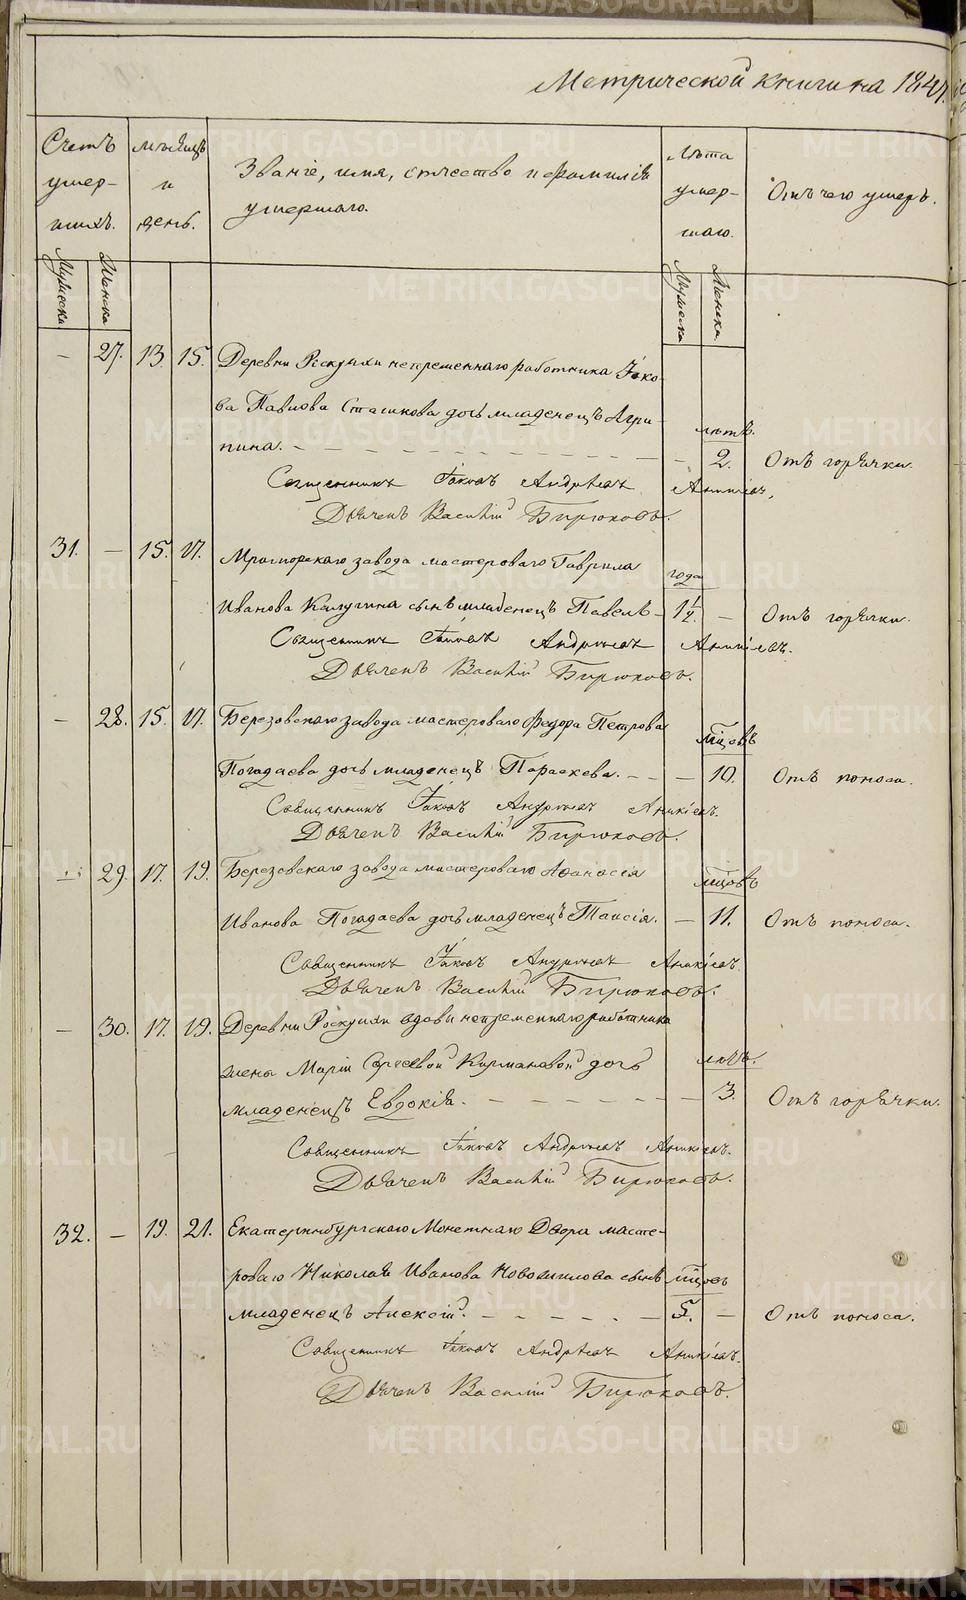 Метрической книги на 1847.
Счетъ умер-шихъ. Мѣсяцъ и день. Званіе, имя, отчество и фамилія умершаго. Лѣта умер-шаго. Отъ чего умеръ.
Мужеска Женска Мужеска Женска
— 27. 13. 15. Деревни Роскухи непременнаго работника Іако-
ва Павлова Сташкова дочь младенецъ Агри- лѣтъ.
пина. — 2. Отъ горячки.
Священникъ Іаковъ Андреевъ Аникіевъ.
Дьячекъ Василій Бирюковъ.
31. — 15. 17. Мраморскаго завода мастероваго Гаврила года
Иванова Калугина сынъ младенецъ Павелъ — 1 1/2. — Отъ горячки.
Священникъ Іаковъ Андреевъ Аникіевъ.
Дьячекъ Василій Бирюковъ.
— 28. 15. 17. Березовскаго завода мастероваго Федора Петрова мѣсяцовъ
Погадаева дочь младенецъ Параскева. — — — 10. Отъ поноса.
Священникъ Іаковъ Андреевъ Аникіевъ.
Дьячекъ Василій Бирюковъ.
— 29. 17. 19. Березовскаго завода мастероваго Аѳанасія мѣсяцовъ
Иванова Погадаева дочь младенецъ Таисія. — 11. Отъ поноса.
Священникъ Іаковъ Андреевъ Аникіевъ.
Дьячекъ Василій Бирюковъ.
— 30. 17. 19. Деревни Роскухи вдовы непременнаго работника
жены Маріи Сергеевой Кирмановой дочь лѣтъ.
младенецъ Евдокія. — 3. Отъ горячки.
Священникъ Іаковъ Андреевъ Аникіевъ.
Дьячекъ Василій Бирюковъ.
32. — 19. 21. Екатеринбургскаго Монетнаго Двора масте-
роваго Николая Иванова Новожилова сынъ мѣсяцовъ
младенецъ Алексій. — 5. — Отъ поноса.
Священникъ Іаковъ Андреевъ Аникіевъ.
Дьячекъ Василій Бирюковъ.
METRIKI.GASO-URAL.RU